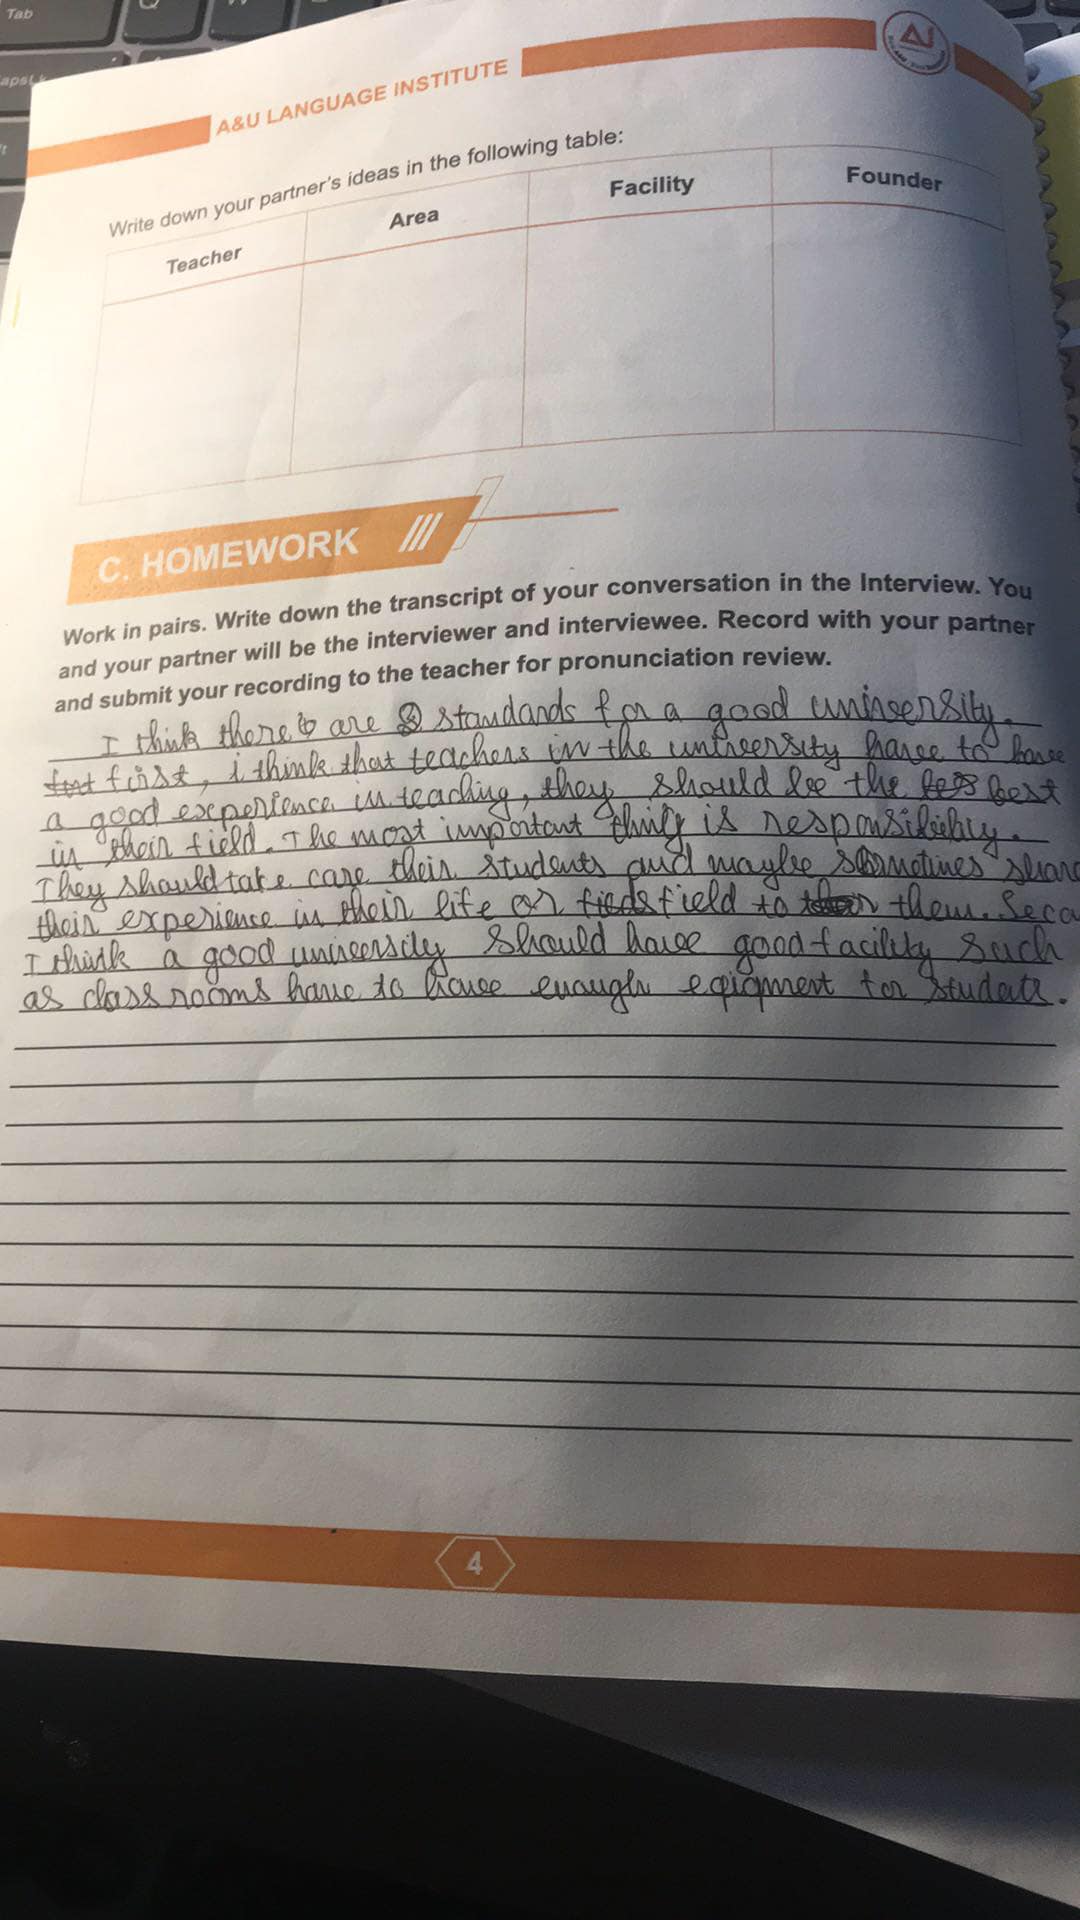 Tab
A&U LANGUAGE INSTITUTE
Write down your partner's ideas in the following table:
Teacher Area Facility Founder
C. HOMEWORK
Work in pairs. Write down the transcript of your conversation in the Interview. You
and your partner will be the interviewer and interviewee. Record with your partner
and submit your recording to the teacher for pronunciation review.
I think there are standards for a good university.
first, i think that teachers in the university have to have
a good experience in teaching, they should be the best
in their field. The most important thing is responsibility.
They should take care their students and maybe sometimes share
their experience in their life or field to them. Seco
I think a good university should have good facility such
as class rooms have to have enough eqiqment for students.
4